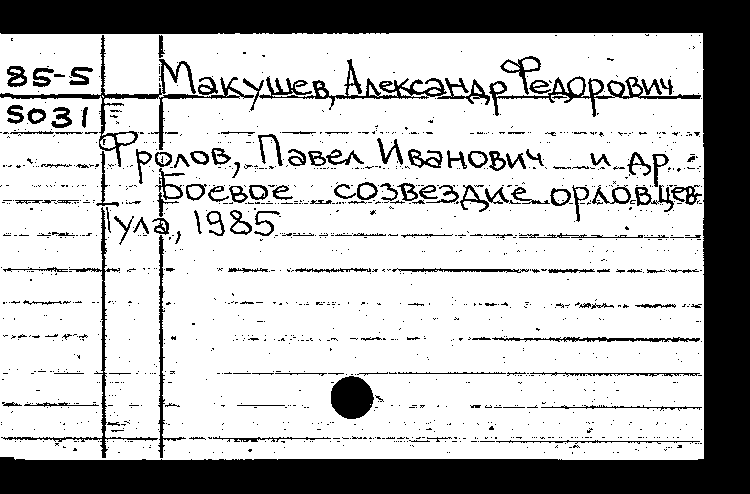 85-5 Макушев, Александр Федорович
5031
Фролов, Павел Иванович и др.
Боевое созвездие орловцев
Тула, 1985